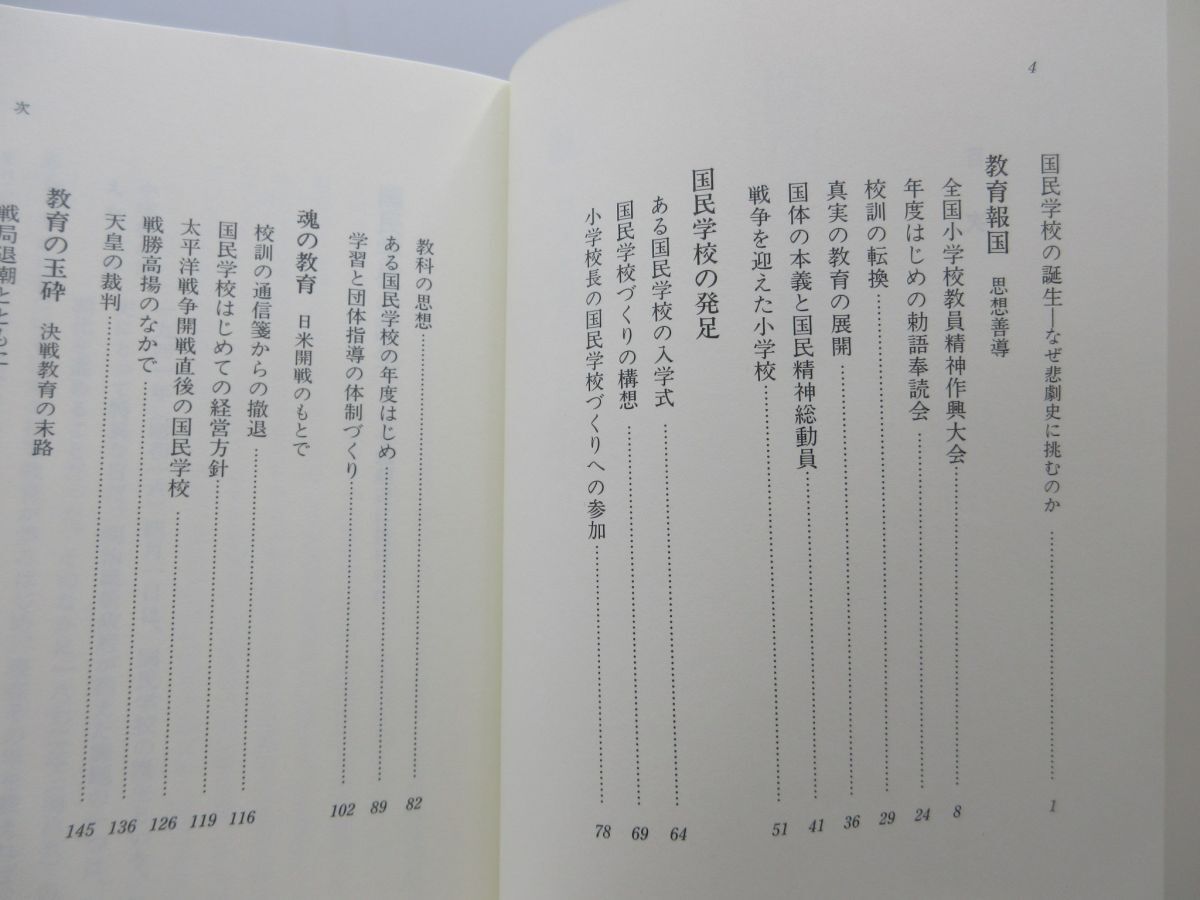 4
国民学校の誕生─なぜ悲劇史に挑むのか……1
教育報国 思想善導
全国小学校教員精神作興大会……8
年度はじめの勅語奉読会……24
校訓の転換……29
真実の教育の展開……36
国体の本義と国民精神総動員……41
戦争を迎えた小学校……51
国民学校の発足
ある国民学校の入学式……64
国民学校づくりの構想……69
小学校長の国民学校づくりへの参加……78
次
教科の思想……82
ある国民学校の年度はじめ……89
学習と団体指導の体制づくり……102
魂の教育 日米開戦のもとで
校訓の通信箋からの撤退……116
国民学校はじめての経営方針……119
太平洋戦争開戦直後の国民学校……126
戦勝高揚のなかで……136
天皇の裁判……145
教育の玉砕 決戦教育の末路
戦局退潮とともに